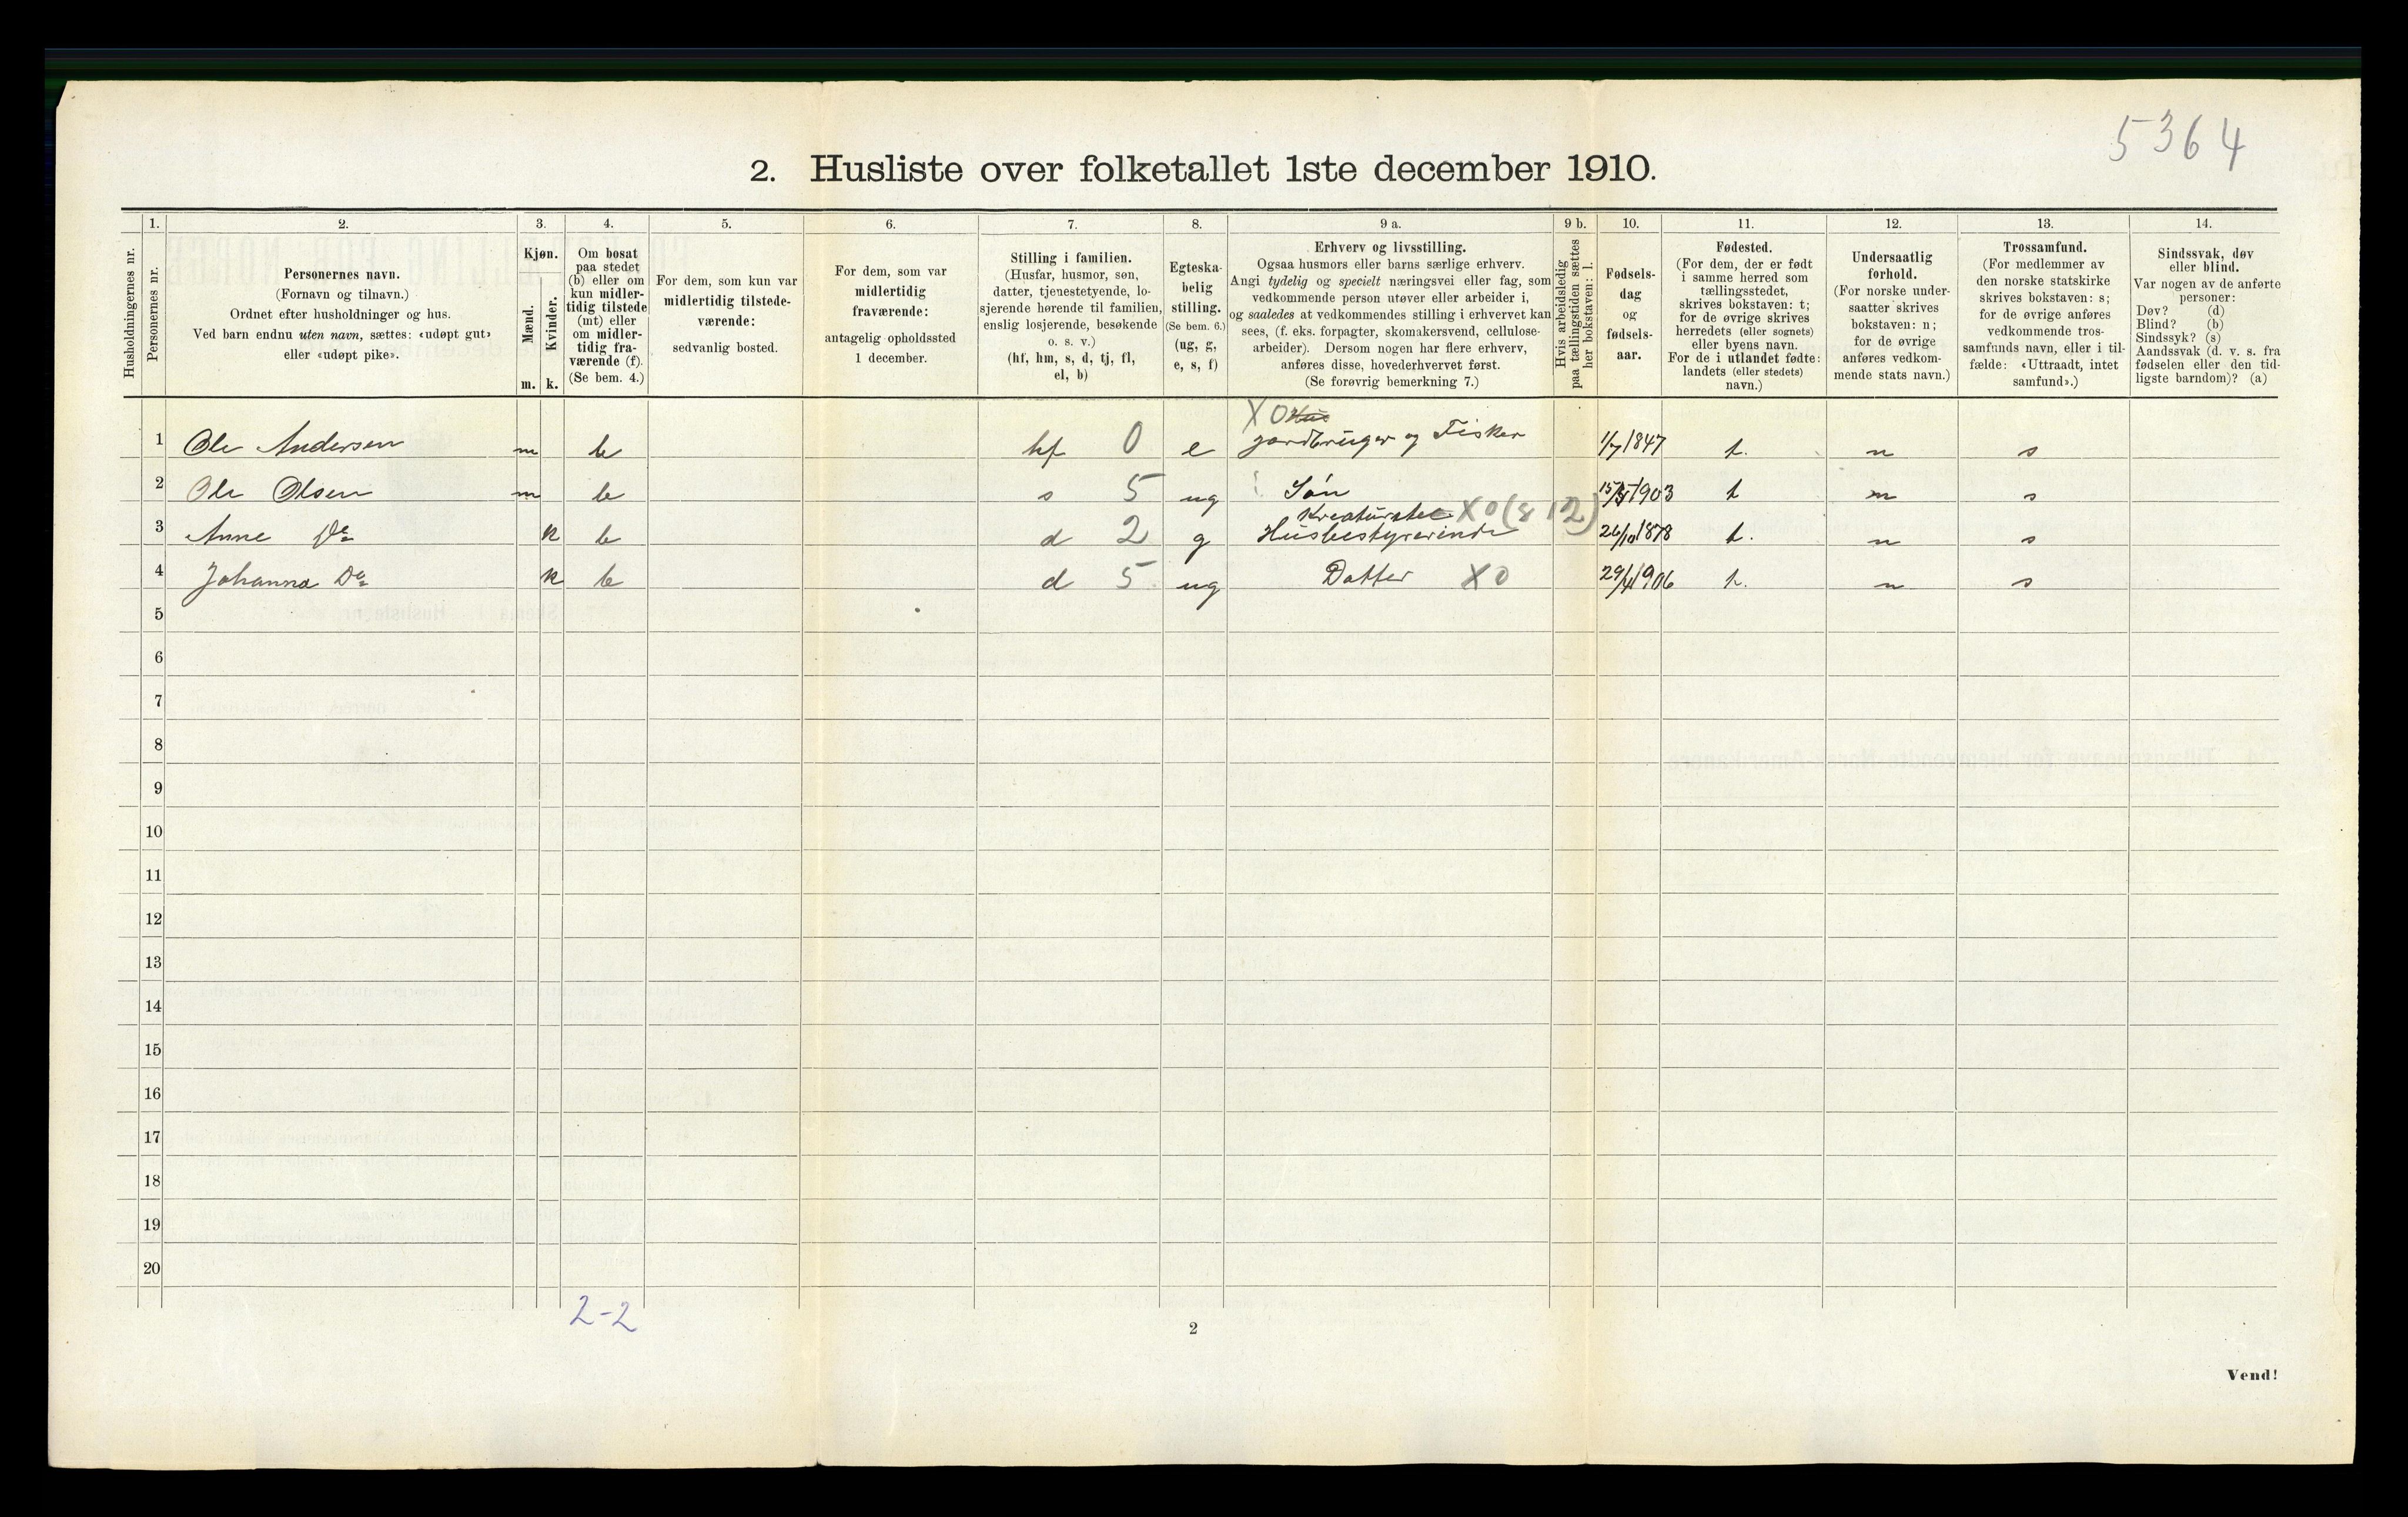 5364
2. Husliste over folketallet 1ste december 1910.
Husholdningernes nr.
1.
Personernes nr.
2.
Personernes navn.
(Fornavn og tilnavn.)
Ordnet efter husholdninger og hus.
Ved barn endnu uten navn, sættes: «udøpt gut»
eller «udøpt pike».
3.
Kjøn.
Mænd.
Kvinder.
m. k.
4.
Om bosat
paa stedet
(b) eller om
kun midler-
tidig tilstede
(mt) eller
om midler-
tidig fra-
værende (f).
(Se bem. 4.)
5.
For dem, som kun var
midlertidig tilstede-
værende:
sedvanlig bosted.
6.
For dem, som var
midlertidig
fraværende:
antagelig opholdssted
1 december.
7.
Stilling i familien.
(Husfar, husmor, søn,
datter, tjenestetyende, lo-
sjerende hørende til familien,
enslig losjerende, besøkende
o. s. v.)
(hf, hm, s, d, tj, fl,
el, b)
8.
Egteska-
belig
stilling.
(Se bem. 6.)
(ug, g,
e, s, f)
9 a.
Erhverv og livsstilling.
Ogsaa husmors eller barns særlige erhverv.
Angi tydelig og specielt næringsvei eller fag, som
vedkommende person utøver eller arbeider i,
og saaledes at vedkommendes stilling i erhvervet kan
sees, (f. eks. forpagter, skomakersvend, cellulose-
arbeider). Dersom nogen har flere erhverv,
anføres disse, hovederhvervet først.
(Se forøvrig bemerkning 7.)
9 b.
Hvis arbeidsledig
paa tællingstiden sættes
her bokstaven: l.
10.
Fødsels-
dag
og
fødsels-
aar.
11.
Fødested.
(For dem, der er født
i samme herred som
tællingsstedet,
skrives bokstaven: t;
for de øvrige skrives
herredets (eller sognets)
eller byens navn.
For de i utlandet fødte:
landets (eller stedets)
navn.)
12.
Undersaatlig
forhold.
(For norske under-
saatter skrives
bokstaven: n;
for de øvrige
anføres vedkom-
mende stats navn.)
13.
Trossamfund.
(For medlemmer av
den norske statskirke
skrives bokstaven: s;
for de øvrige anføres
vedkommende tros-
samfunds navn, eller i til-
fælde: «Uttraadt, intet
samfund».)
14.
Sindssvak, døv
eller blind.
Var nogen av de anførte
personer:
Døv? (d)
Blind? (b)
Sindssyk? (s)
Aandssvak (d. v. s. fra
fødselen eller den tid-
ligste barndom)? (a)
X0 Hus
1 Ole Andersen m b hf 0 e jordbruger og Fisker 1/7 1847 t. n s
2 Ole Olsen m b s 5 ug Søn 15/5 1903 t n s
Kreaturstel X0 (812)
3 Anne Do k b d 2 g Husbestyrerinde 26/10 1878 t. n s
4 Johanna Do k b d 5 ug Datter X0 29/4 1906 t. n s
5
6
7
8
9
10
11
12
13
14
15
16
17
18
19
20
2-2
2
Vend!